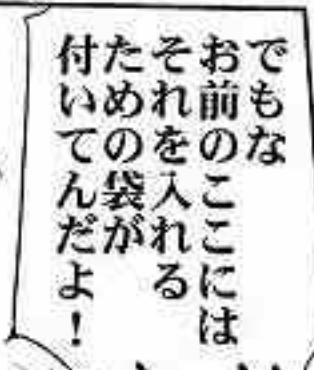 でもな
お前のここには
それを入れる
ための袋が
付いてんだよ！